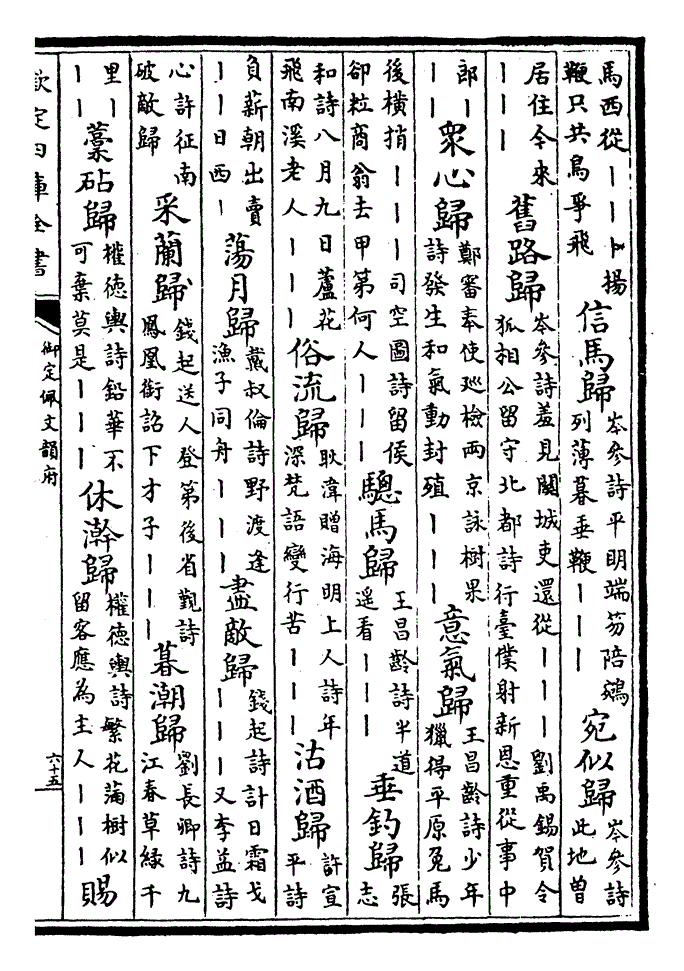 馬西從｜｜｜卜揚鞭只共鳥爭飛 信馬歸 岑參詩平明端笏陪鵷列薄暮垂鞭｜｜｜ 宛似歸 岑參詩此地曽
居住今來｜｜｜ 舊路歸 岑參詩羞見關城吏還從｜｜｜劉禹錫賀令狐相公留守北都詩行臺僕射新恩重從事中
郎｜｜｜ 衆心歸 鄭審奉使巡檢兩京詠樹果詩發生和氣動封殖｜｜｜ 意氣歸 王昌齡詩少年獵得平原兔馬
後横捎｜｜｜司空圖詩留侯卻粒商翁去甲第何人｜｜｜ 驄馬歸 王昌齡詩半道遥看｜｜｜ 垂釣歸 張志
和詩八月九日蘆花飛南溪老人｜｜｜ 俗流歸 耿湋贈海明上人詩年深梵語變行苦｜｜｜ 沽酒歸 許宣平詩
負薪朝出賣｜｜日西｜ 蕩月歸 戴叔倫詩野渡逢漁子同舟｜｜｜ 盡敵歸 錢起詩計日霜戈｜｜｜又李益詩
心許征南破敵歸 采蘭歸 錢起送人登第後省覲詩鳳凰銜詔下才子｜｜｜ 暮潮歸 劉長卿詩九江春草緑千
里｜｜｜ 藁砧歸 權徳輿詩鉛華不可棄莫是｜｜｜ 休澣歸 權徳輿詩繁花滿樹似留客應為主人｜｜｜ 賜
欽定四庫全書
御定佩文韻府
六十五